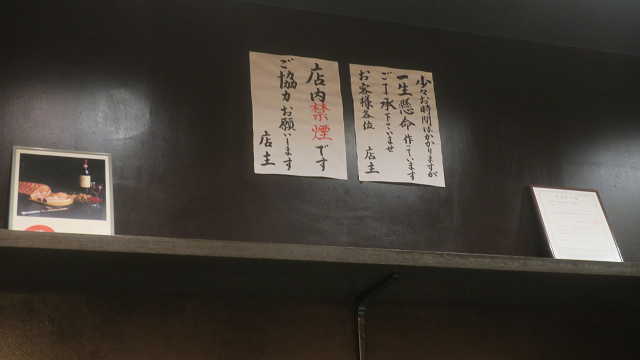 少々お時間はかかりますが
一生懸命作っています
ご了承下さいませ
お客様各位
店主
店内禁煙です
ご協力お願いします
店主